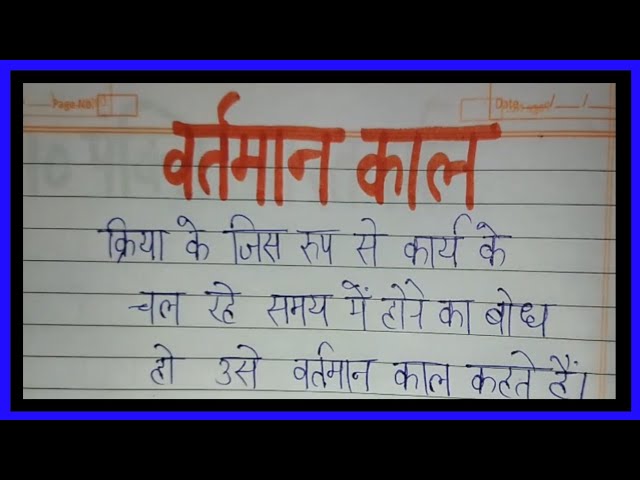 Page No.
Date
वर्तमान काल
क्रिया के जिस रुप से कार्य के
चल रहे समय में होने का बोध
हो उसे वर्तमान काल कहते हैं।